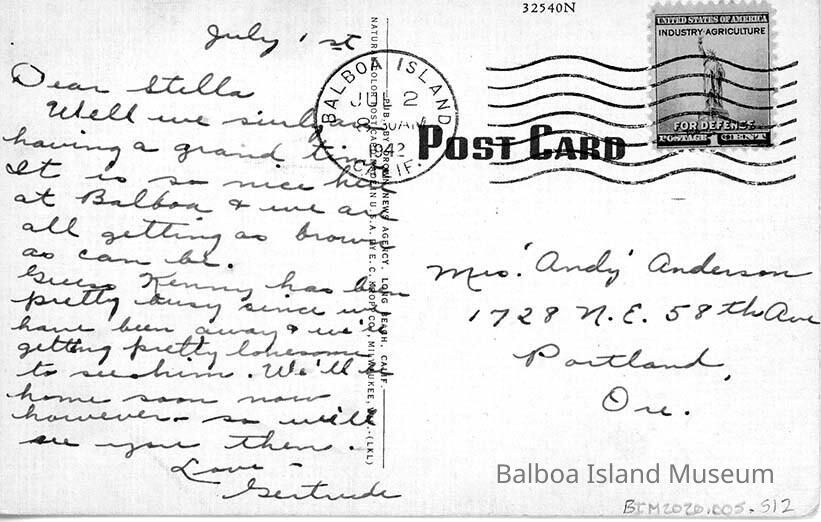 32540N
July 1st
Dear Stella
Well we sure are
having a grand time
It is so nice here
at Balboa & we are
all getting as brown
as can be.
Guess Kenny has been
pretty busy since we
have been away & we're
getting pretty lonesome
to see him. We'll be
home soon now
however - so will
see you then.
Love -
Gertrude
NATURAL COLOR POST CARD MADE IN U.S.A. BY E. C. KROPP CO., MILWAUKEE, WIS. (LKL)
PUB. BY BROWN NEWS AGENCY, LONG BEACH, CALIF.
BALBOA ISLAND
JUL 2
30 AM
1942
CALIF.
POST CARD
UNITED STATES OF AMERICA
INDUSTRY·AGRICULTURE
FOR DEFENSE
POSTAGE 1 CENT
Mrs. 'Andy' Anderson
1728 N.E. 58th Ave
Portland,
Ore.
Balboa Island Museum
BIM2020.005.512